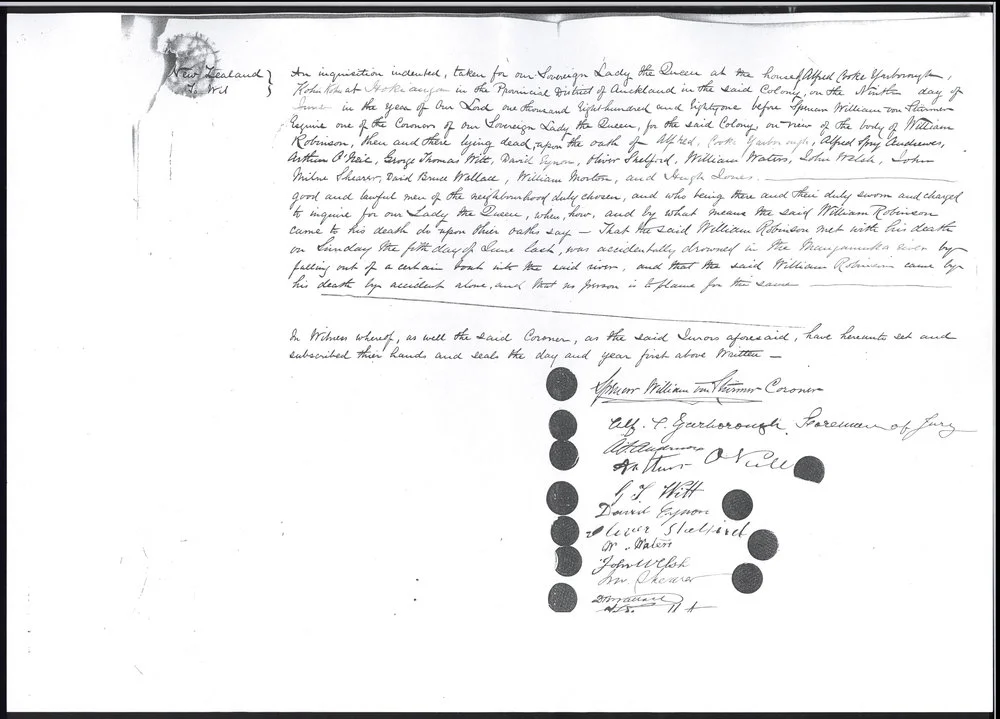 New Zealand
To Wit
An inquisition indented, taken for our Sovereign Lady the Queen at the house of Alfred Cooke Yarborough,
Kohu Kohu at Hokeanga in the Provincial District of Auckland in the said Colony, on the Ninth day of
June in the year of Our Lord one thousand Eight hundred and Eighty one before Spencer William von Sturmer
Esquire one of the Coroners of our Sovereign Lady the Queen, for the said Colony, on view of the body of William
Robinson, then and there lying dead, upon the oath of Alfred Cooke Yarborough, Alfred Andrewes,
Arthur O'Neil, George Thomas Witt, David Eynon, Oliver Shelford, William Waters, John Walsh, John
Milne Shearer, David Bruce Wallace, William Morton, and Hugh Jones.
good and lawful men of the neighbourhood duly chosen, and who being there and then duly sworn and charged
to inquire for our Lady the Queen, when, how, and by what means the said William Robinson
came to his death do upon their oaths say - That the said William Robinson met with his death
on Sunday the fifth day of June last, was accidentally drowned in the Mangamuka river by
falling out of a certain boat into the said river, and that the said William Robinson came by
his death by accident alone, and that no person is to blame for the same
In Witness whereof, as well the said Coroner, as the said Jurors aforesaid, have hereunto set and
subscribed thier hands and seals the day and year first above Written -
Spencer William von Sturmer Coroner
Alf. C. Yarborough. Foreman of Jury
Arthur O'Neill
G T Witt
David Eynon
Oliver Shelford
W. Waters
John Welsh
Jno Shearer